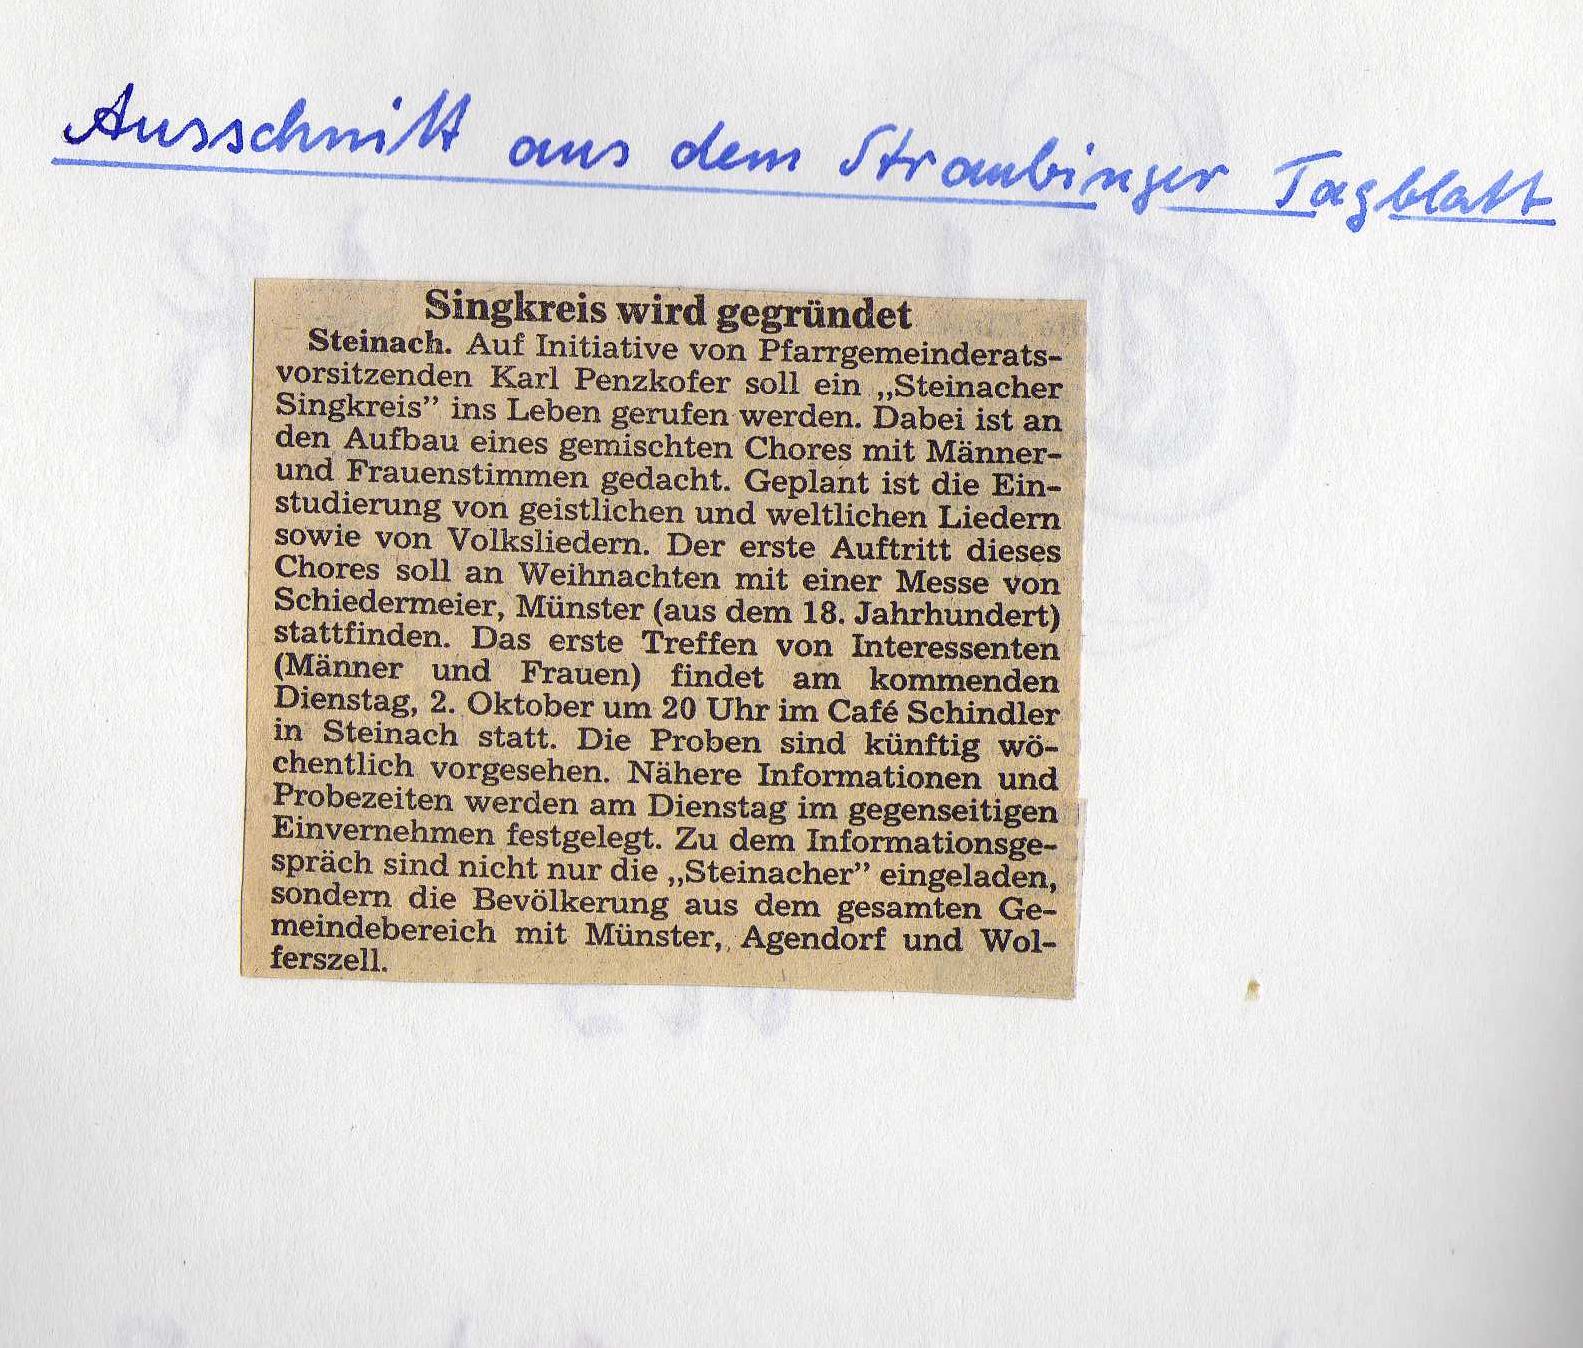 Ausschnitt aus dem Straubinger Tagblatt
Singkreis wird gegründet
Steinach. Auf Initiative von Pfarrgemeinderats-
vorsitzenden Karl Penzkofer soll ein „Steinacher
Singkreis” ins Leben gerufen werden. Dabei ist an
den Aufbau eines gemischten Chores mit Männer-
und Frauenstimmen gedacht. Geplant ist die Ein-
studierung von geistlichen und weltlichen Liedern
sowie von Volksliedern. Der erste Auftritt dieses
Chores soll an Weihnachten mit einer Messe von
Schiedermeier, Münster (aus dem 18. Jahrhundert)
stattfinden. Das erste Treffen von Interessenten
(Männer und Frauen) findet am kommenden
Dienstag, 2. Oktober um 20 Uhr im Café Schindler
in Steinach statt. Die Proben sind künftig wö-
chentlich vorgesehen. Nähere Informationen und
Probezeiten werden am Dienstag im gegenseitigen
Einvernehmen festgelegt. Zu dem Informationsge-
spräch sind nicht nur die „Steinacher” eingeladen,
sondern die Bevölkerung aus dem gesamten Ge-
meindebereich mit Münster, Agendorf und Wol-
ferszell.